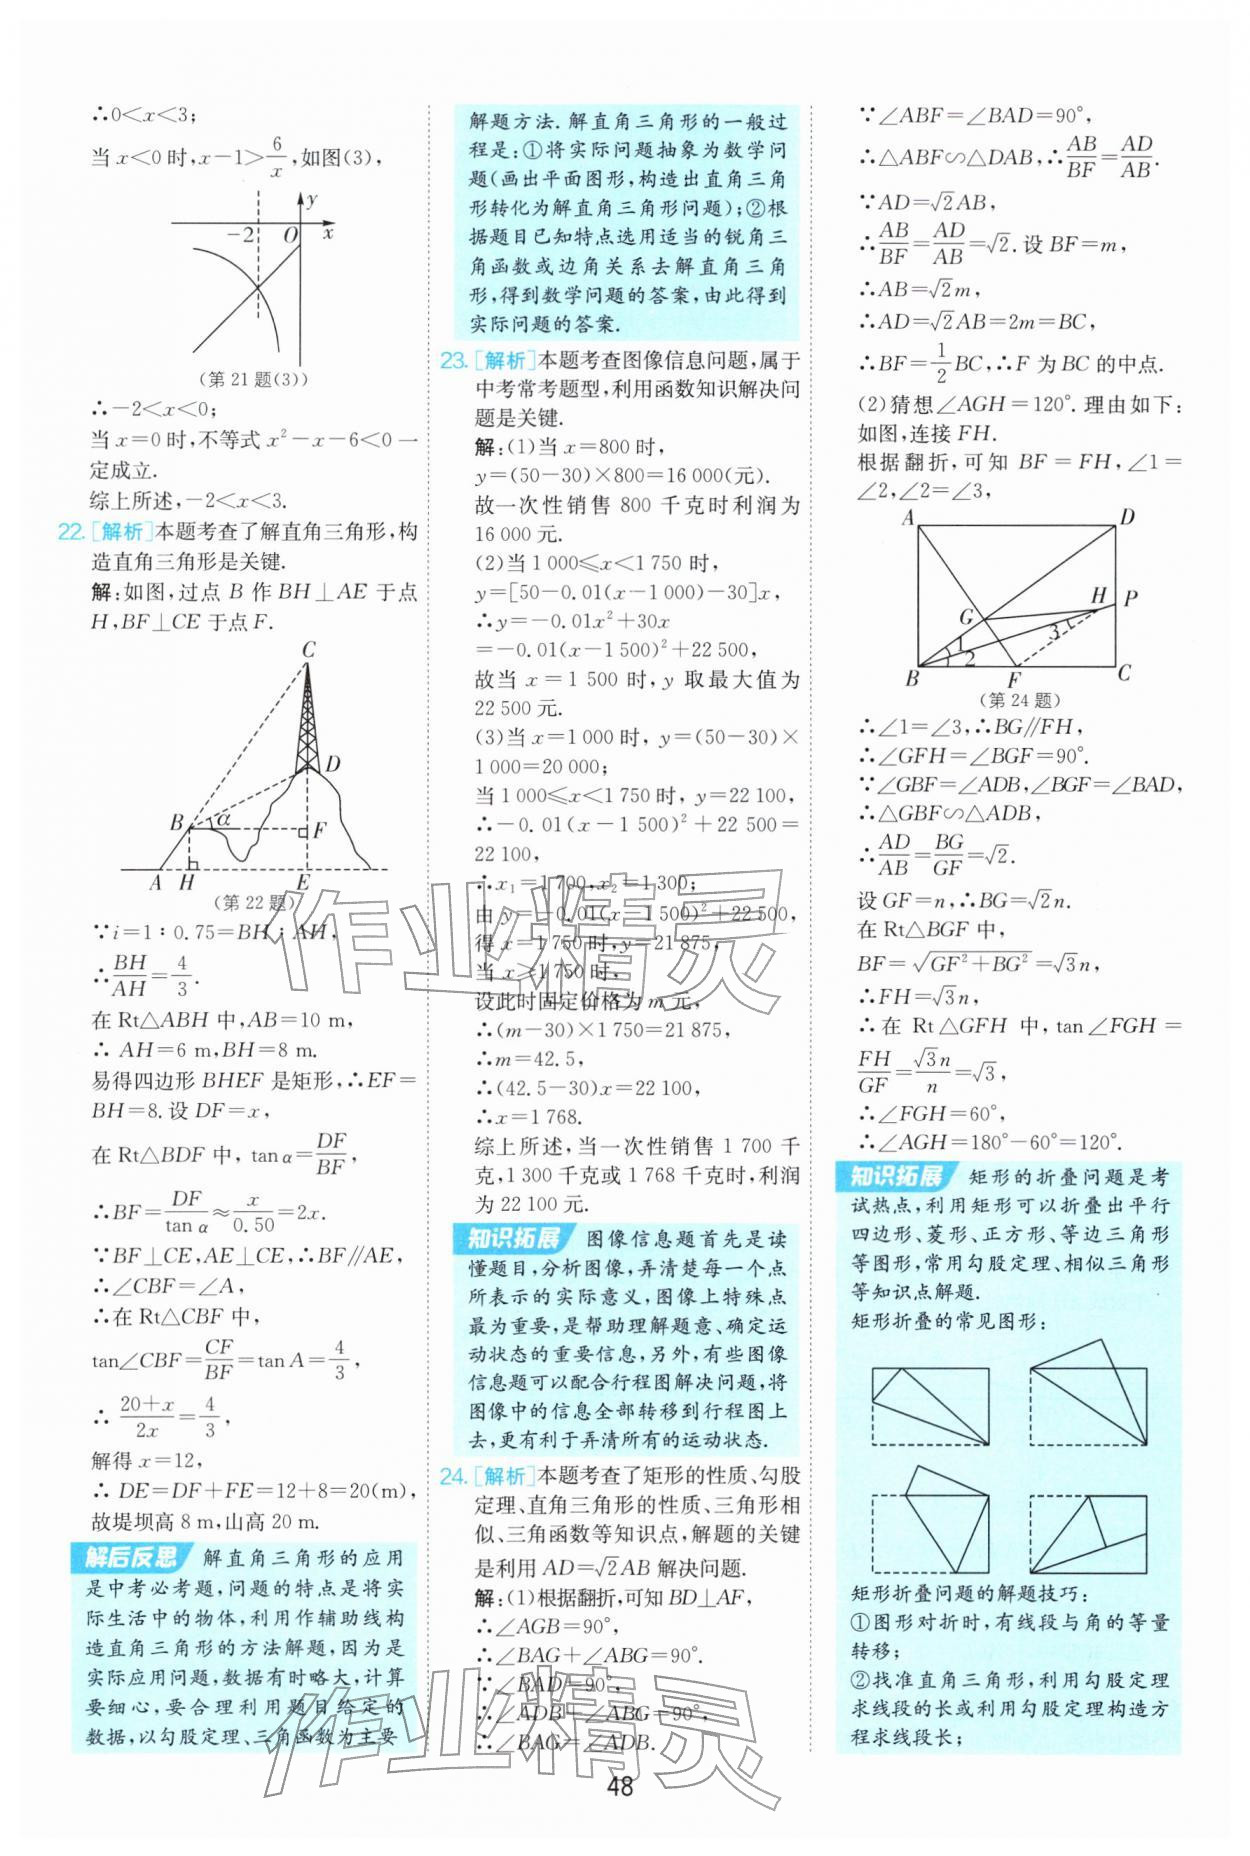 ∴0<x<3;
当x<0时,x-1>6/x,如图(3),
y
-2 O x
(第21题(3))
∴-2<x<0;
当x=0时,不等式x²-x-6<0一
定成立.
综上所述,-2<x<3.
22.[解析]本题考查了解直角三角形,构
造直角三角形是关键.
解:如图,过点B作BH⊥AE于点
H,BF⊥CE于点F.
C
D
B α F
A H E
(第22题)
∵i=1∶0.75=BH∶AH,
∴BH/AH=4/3.
在Rt△ABH中,AB=10 m,
∴AH=6 m,BH=8 m.
易得四边形BHEF是矩形,∴EF=
BH=8.设DF=x,
在Rt△BDF中,tanα=DF/BF,
∴BF=DF/tanα≈x/0.50=2x.
∵BF⊥CE,AE⊥CE,∴BF∥AE,
∴∠CBF=∠A,
∴在Rt△CBF中,
tan∠CBF=CF/BF=tan A=4/3,
∴(20+x)/2x=4/3,
解得x=12,
∴DE=DF+FE=12+8=20(m),
故堤坝高8 m,山高20 m.
解后反思 解直角三角形的应用
是中考必考题,问题的特点是将实
际生活中的物体,利用作辅助线构
造直角三角形的方法解题,因为是
实际应用问题,数据有时略大,计算
要细心,要合理利用题目给定的
数据,以勾股定理、三角函数为主要
解题方法.解直角三角形的一般过
程是:①将实际问题抽象为数学问
题(画出平面图形,构造出直角三角
形转化为解直角三角形问题);②根
据题目已知特点选用适当的锐角三
角函数或边角关系去解直角三角
形,得到数学问题的答案,由此得到
实际问题的答案.
23.[解析]本题考查图像信息问题,属于
中考常考题型,利用函数知识解决问
题是关键.
解:(1)当x=800时,
y=(50-30)×800=16 000(元).
故一次性销售800千克时利润为
16 000元.
(2)当1 000≤x<1 750时,
y=[50-0.01(x-1 000)-30]x,
∴y=-0.01x²+30x
=-0.01(x-1 500)²+22 500,
故当x=1 500时,y取最大值为
22 500元.
(3)当x=1 000时,y=(50-30)×
1 000=20 000;
当1 000≤x<1 750时,y=22 100,
∴-0.01(x-1 500)²+22 500=
22 100,
∴x₁=1 700,x₂=1 300;
由y=-0.01(x-1 500)²+22 500,
得x=1 750时,y=21 875,
当x≥1 750时,
设此时固定价格为m元,
∴(m-30)×1 750=21 875,
∴m=42.5,
∴(42.5-30)x=22 100,
∴x=1 768.
综上所述,当一次性销售1 700千
克,1 300千克或1 768千克时,利润
为22 100元.
知识拓展 图像信息题首先是读
懂题目,分析图像,弄清楚每一个点
所表示的实际意义,图像上特殊点
最为重要,是帮助理解题意、确定运
动状态的重要信息,另外,有些图像
信息题可以配合行程图解决问题,将
图像中的信息全部转移到行程图上
去,更有利于弄清所有的运动状态.
24.[解析]本题考查了矩形的性质、勾股
定理、直角三角形的性质、三角形相
似、三角函数等知识点,解题的关键
是利用AD=√2AB解决问题.
解:(1)根据翻折,可知BD⊥AF,
∴∠AGB=90°,
∴∠BAG+∠ABG=90°.
∵∠BAD=90°,
∴∠ADB+∠ABG=90°,
∴∠BAG=∠ADB.
∵∠ABF=∠BAD=90°,
∴△ABF∽△DAB,∴AB/BF=AD/AB.
∵AD=√2AB,
∴AB/BF=AD/AB=√2.设BF=m,
∴AB=√2m,
∴AD=√2AB=2m=BC,
∴BF=1/2BC,∴F为BC的中点.
(2)猜想∠AGH=120°.理由如下:
如图,连接FH.
根据翻折,可知BF=FH,∠1=
∠2,∠2=∠3,
A D
H P
G
1 3
2
B F C
(第24题)
∴∠1=∠3,∴BG∥FH,
∴∠GFH=∠BGF=90°.
∵∠GBF=∠ADB,∠BGF=∠BAD,
∴△GBF∽△ADB,
∴AD/AB=BG/GF=√2.
设GF=n,∴BG=√2n.
在Rt△BGF中,
BF=√(GF²+BG²)=√3n,
∴FH=√3n,
∴在Rt△GFH中,tan∠FGH=
FH/GF=√3n/n=√3,
∴∠FGH=60°,
∴∠AGH=180°-60°=120°.
知识拓展 矩形的折叠问题是考
试热点,利用矩形可以折叠出平行
四边形、菱形、正方形、等边三角形
等图形,常用勾股定理、相似三角形
等知识点解题.
矩形折叠的常见图形:
矩形折叠问题的解题技巧:
①图形对折时,有线段与角的等量
转移;
②找准直角三角形,利用勾股定理
求线段的长或利用勾股定理构造方
程求线段长;
48
作业精灵
作业精灵